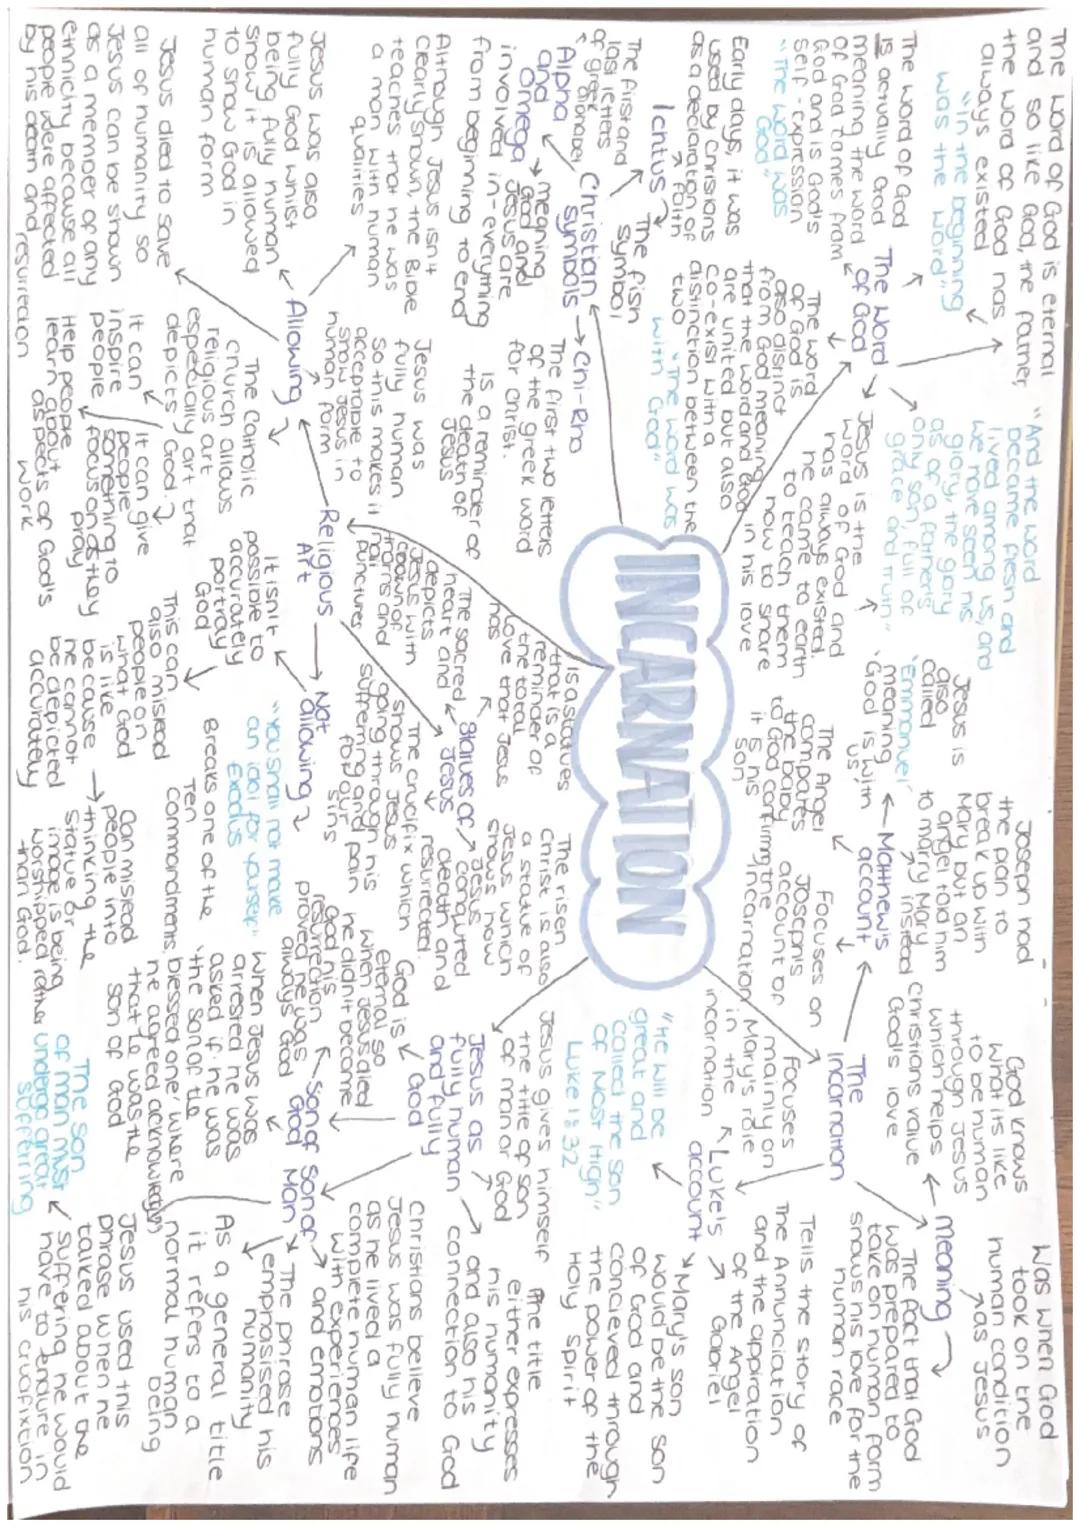 INCARNATION
The word of God is eternal
and so like God, the father,
the word of God has
always existed
"in the beginning
was the word"
The word of God
is actually God
meaning the word
of God comes from
God and is God's
self-expression
"The word was
God"
The Word
of God
The word
of God is
also distinct
from God meaning
that the word and God
are united but also
co-exist with a
distinction between the
two
"The word was
with God"
"And the word
became flesh and
lived among us, and
we have seen his
glory, the glory
as of a father's
only son, full of
grace and truth"
Jesus is the
word of God and
has always existed.
he came to earth
to teach them
how to share
in his love
Jesus is
also
called
'Emmanuel'
meaning
'God is with
us'
Matthew's
account
Joseph had
the plan to
break up with
Mary but an
angel told him
to marry Mary
instead
The Angel
compares
the baby
to God confirming
it is his
son
Focuses on
Joseph's
account of
the
incarnation
The
Incarnation
meaning
Was when God
took on the
human condition
as Jesus
God knows
what it's like
to be human
through Jesus
which helps
christians value
God's love
The fact that God
was prepared to
take on human form
shows his love for the
human race
Focuses
mainly on
Mary's role
in the
incarnation
Luke's
account
Tells the story of
The Annunciation
and the appiration
of the Angel
Gabriel
Mary's son
would be the son
of God and
concieved through
the power of the
Holy Spirit
"He will be
great and
called the son
of Most High"
Luke 1:32
Christian
symbols
Ichtus
The fish
symbol
Early days, it was
used by Chrisians
as a declaration of
faith
Alpha
and
Omega
The first and
last letters
of greek
alphabet
meaning
God and
Jesus are
involved in everything
from beginning to end
Chi-Rho
The first two letters
of the greek word
for christ.
is a reminder of
the death of
Jesus
Religious
Art
Allowing
Although Jesus isn't
clearly shown, the Bible
teaches that he was
a man with human
qualities
Jesus was also
fully God whilst
being fully human
show it is allowed
to show God in
human form
Jesus died to save
all of humanity so
Jesus can be shown
as a member of any
ethnicity because all
people were affected
by his death and
resurrection
Jesus was
fully human
so this makes it
acceptable to
show Jesus in
human form
The Catholic
church allows
religious art
especially art that
depicts God
It can
inspire
people
Help people
learn about
aspects of God's
work
It can give
people
something to
focus on as they
pray
Not
allowing
It isn't
possible to
accurately
portray
God
This can
also mislead
people on
what God
is like
because
he cannot
be depicted
accurately
"You shall not make
an idol for yourself"
Exodus
Breaks one of the
Ten
commandments.
Can mislead
people into
thinking the
statue or
image is being
worshipped rather
than God.
Statues of
Jesus
The sacred
heart and
depicts
Jesus with
crown of
thorns and
nail
punctures
Is a statues
that is a
reminder of
the total
love that Jesus
has
The crucifix which
shows Jesus
going through his
suffering and pain
for our
sins
The risen
Christ is also
a statue of
Jesus which
shows how
Jesus
conquered
death and
resurrected.
Jesus as
fully human
and fully
God
Jesus gives himself
the title of son
of man or God
The title
either expresses
his humanity
and also his
connection to God
God is
eternal so
when Jesus died
he didn't become
God his
resurrection
proved he was
always God
Son of
God
When Jesus was
arrested he was
asked if he was
'the son of the
blessed one' where
he agreed acknowledging
that he was the
son of God
Son of
Man
Christians believe
Jesus was fully human
as he lived a
complete human life
with experiences
and emotions
The phrase
emphasised his
humanity
As a general title
it refers to a
normal human
being
Jesus used this
phrase when he
talked about the
suffering he would
have to endure in
his crucifixtion
The son
of man must
undergo great
suffering